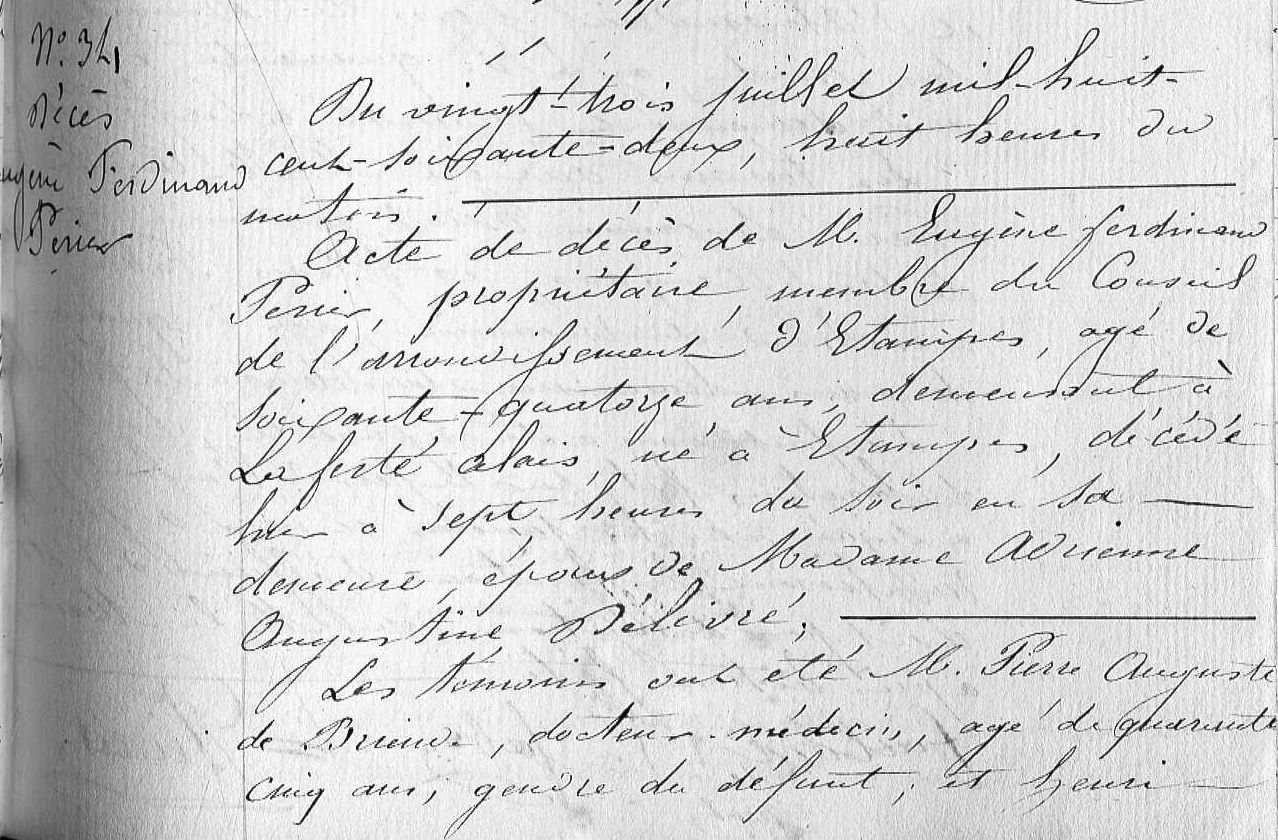 N°. 34
Décès
Eugène Ferdinand
Perier
Du vingt-trois juillet mil-huit-
cent-soixante-deux, huit heures du
matin.
Acte de décès de M. Eugène ferdinand
Perier, propriétaire, membre du Conseil
de l'arrondissement d'Etampes, agé de
soixante-quatorze ans, demeurant à
La ferté alais, né à Etampes, décédé
hier à sept heures du soir en sa
demeure, époux de Madame Adrienne
Augustine Délivré,
Les témoins ont été M. Pierre Auguste
de Brieude, docteur-médecin, agé de quarante
cinq ans, gendre du défunt, et henri